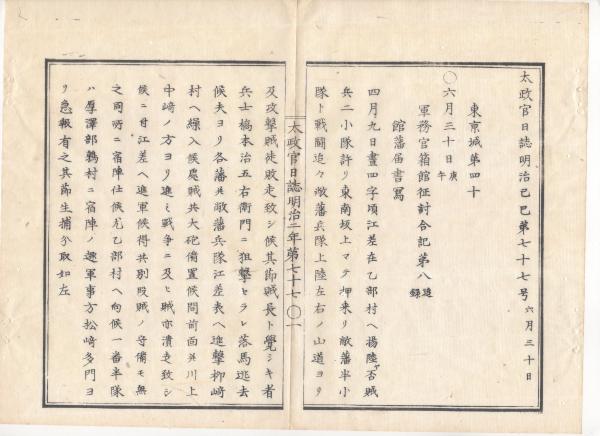 太政官日誌明治己巳第七十七号 六月三十日
東京城第四十
〇六月三十日庚午
軍務官箱館征討合記第八追録
館藩届書写
四月九日晝四字頃江差在乙部村ヘ揚陸否賊
兵二小隊許リ東南坂上マテ押来リ敝藩半小
隊ト戰鬪追々敝藩兵隊上陸左右ノ山道ヨリ
太政官日誌明治二年第七十七 〇一
及攻撃賊徒敗走致シ候其節賊長ト覺シキ者
兵士橋本治五右衛門ニ狙撃セラレ落馬逃去
候夫ヨリ各藩并敝藩兵隊江差表ヘ進撃柳﨑
村ヘ繰入候處賊共大砲備置候間前面并川上
中﨑ノ方ヨリ進ミ戰争ニ及ヒ賊亦潰走致シ
候ニ付江差ヘ進軍候得共別段賊ノ守備モ無
之同所ニ宿陣仕候尤乙部村ヘ向候一番半隊
ハ厚澤部鶉村ニ宿陣ノ趣軍事方松﨑多門ヨ
リ急報有之其節生捕分取如左